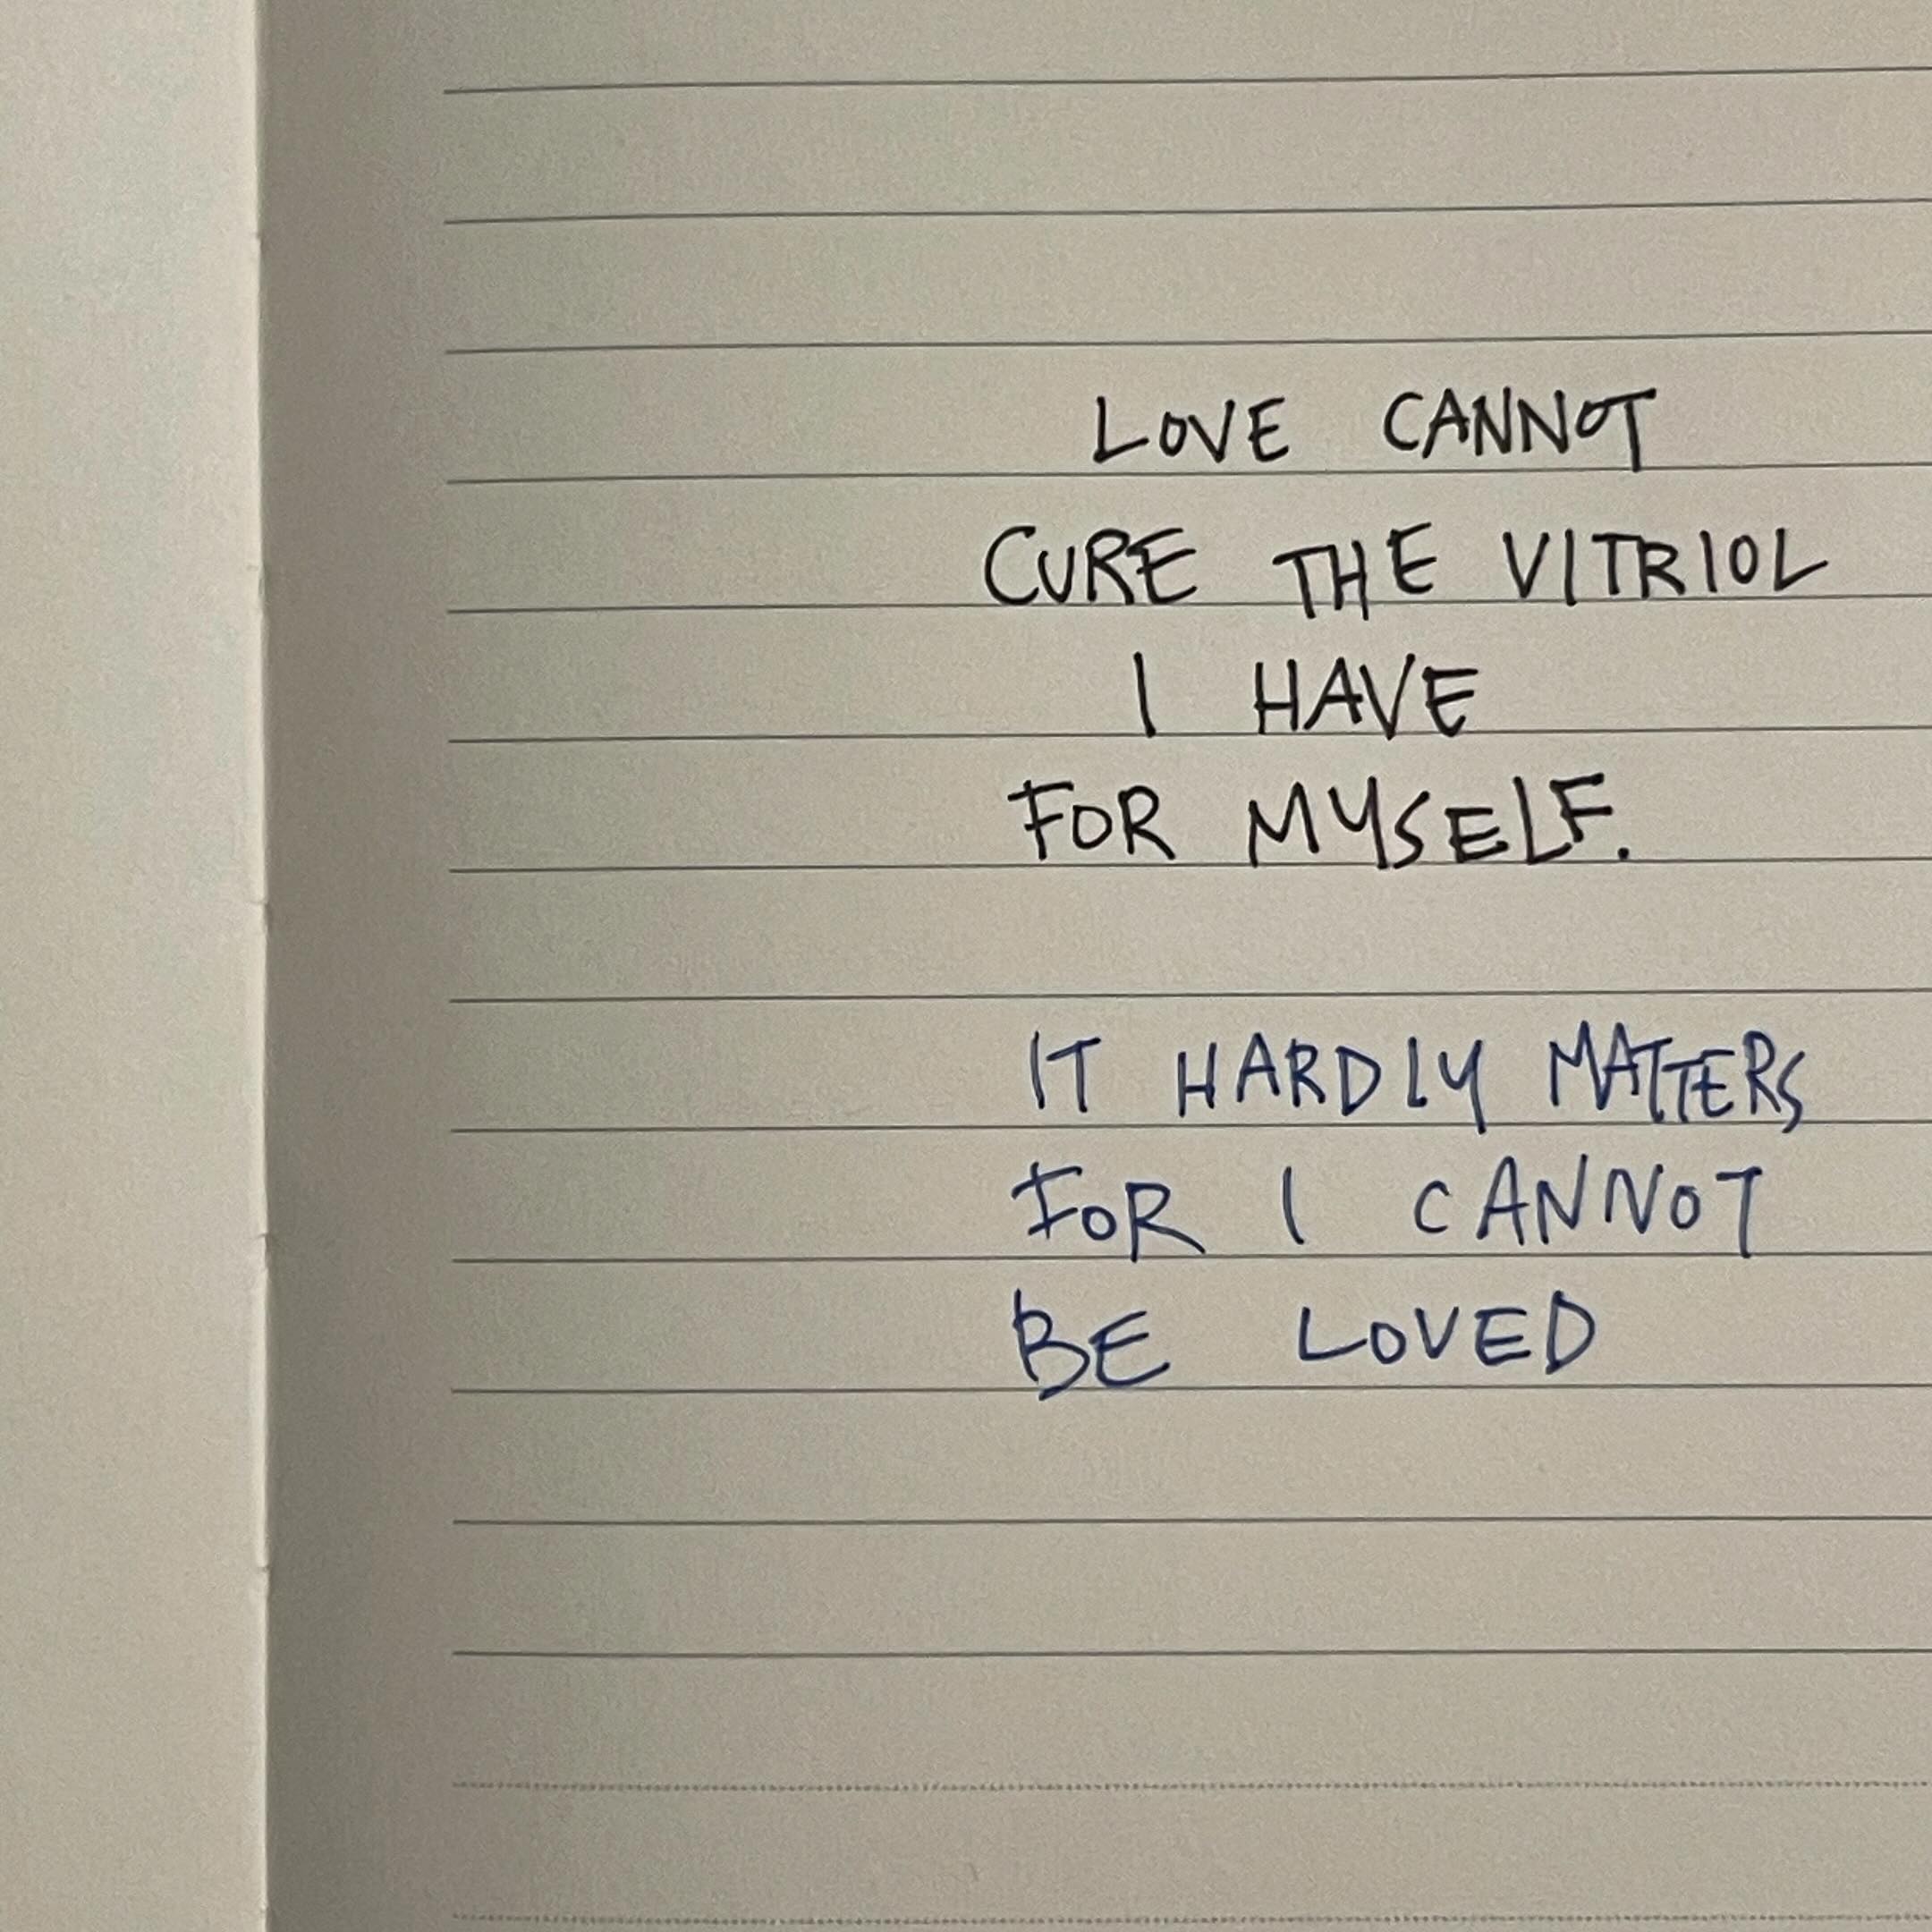 LOVE CANNOT
CURE THE VITRIOL
I HAVE
FOR MYSELF.
IT HARDLY MATTERS
FOR I CANNOT
BE LOVED